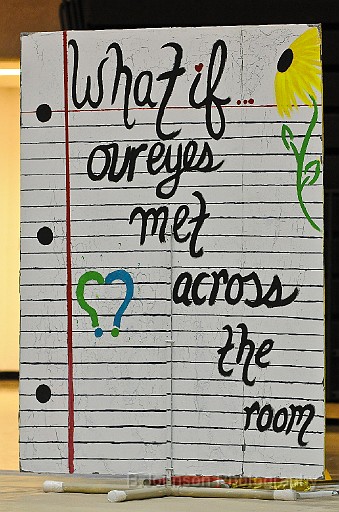 What if...
our eyes
met
across
the
room
E Johnson Photography